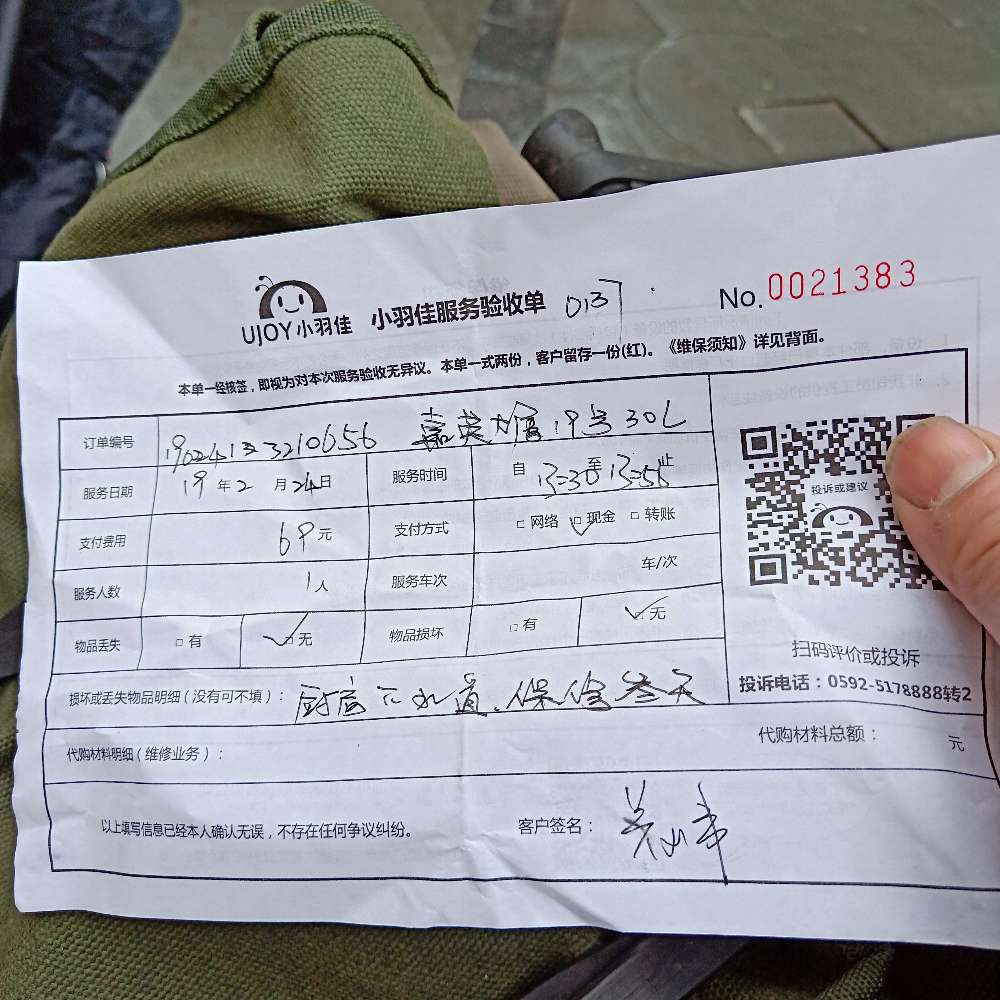 UJOY小羽佳 小羽佳服务验收单 0137 No.0021383
本单一经核签，即视为对本次服务验收无异议。本单一式两份，客户留存一份(红)。《维保须知》详见背面。
订单编号 嘉英大厦19号30L
服务日期 19年2月24日 服务时间 自13:30至13:56止
支付费用 69元 支付方式 □网络 ☑现金 □转账
服务人数 1人 服务车次 车/次
物品丢失 □有 ☑无 物品损坏 □有 ☑无
投诉或建议
扫码评价或投诉
投诉电话：0592-5178888转2
损坏或丢失物品明细（没有可不填）：厨房下水道、保修叁天
代购材料明细（维修业务）： 代购材料总额： 元
以上填写信息已经本人确认无误，不存在任何争议纠纷。 客户签名：